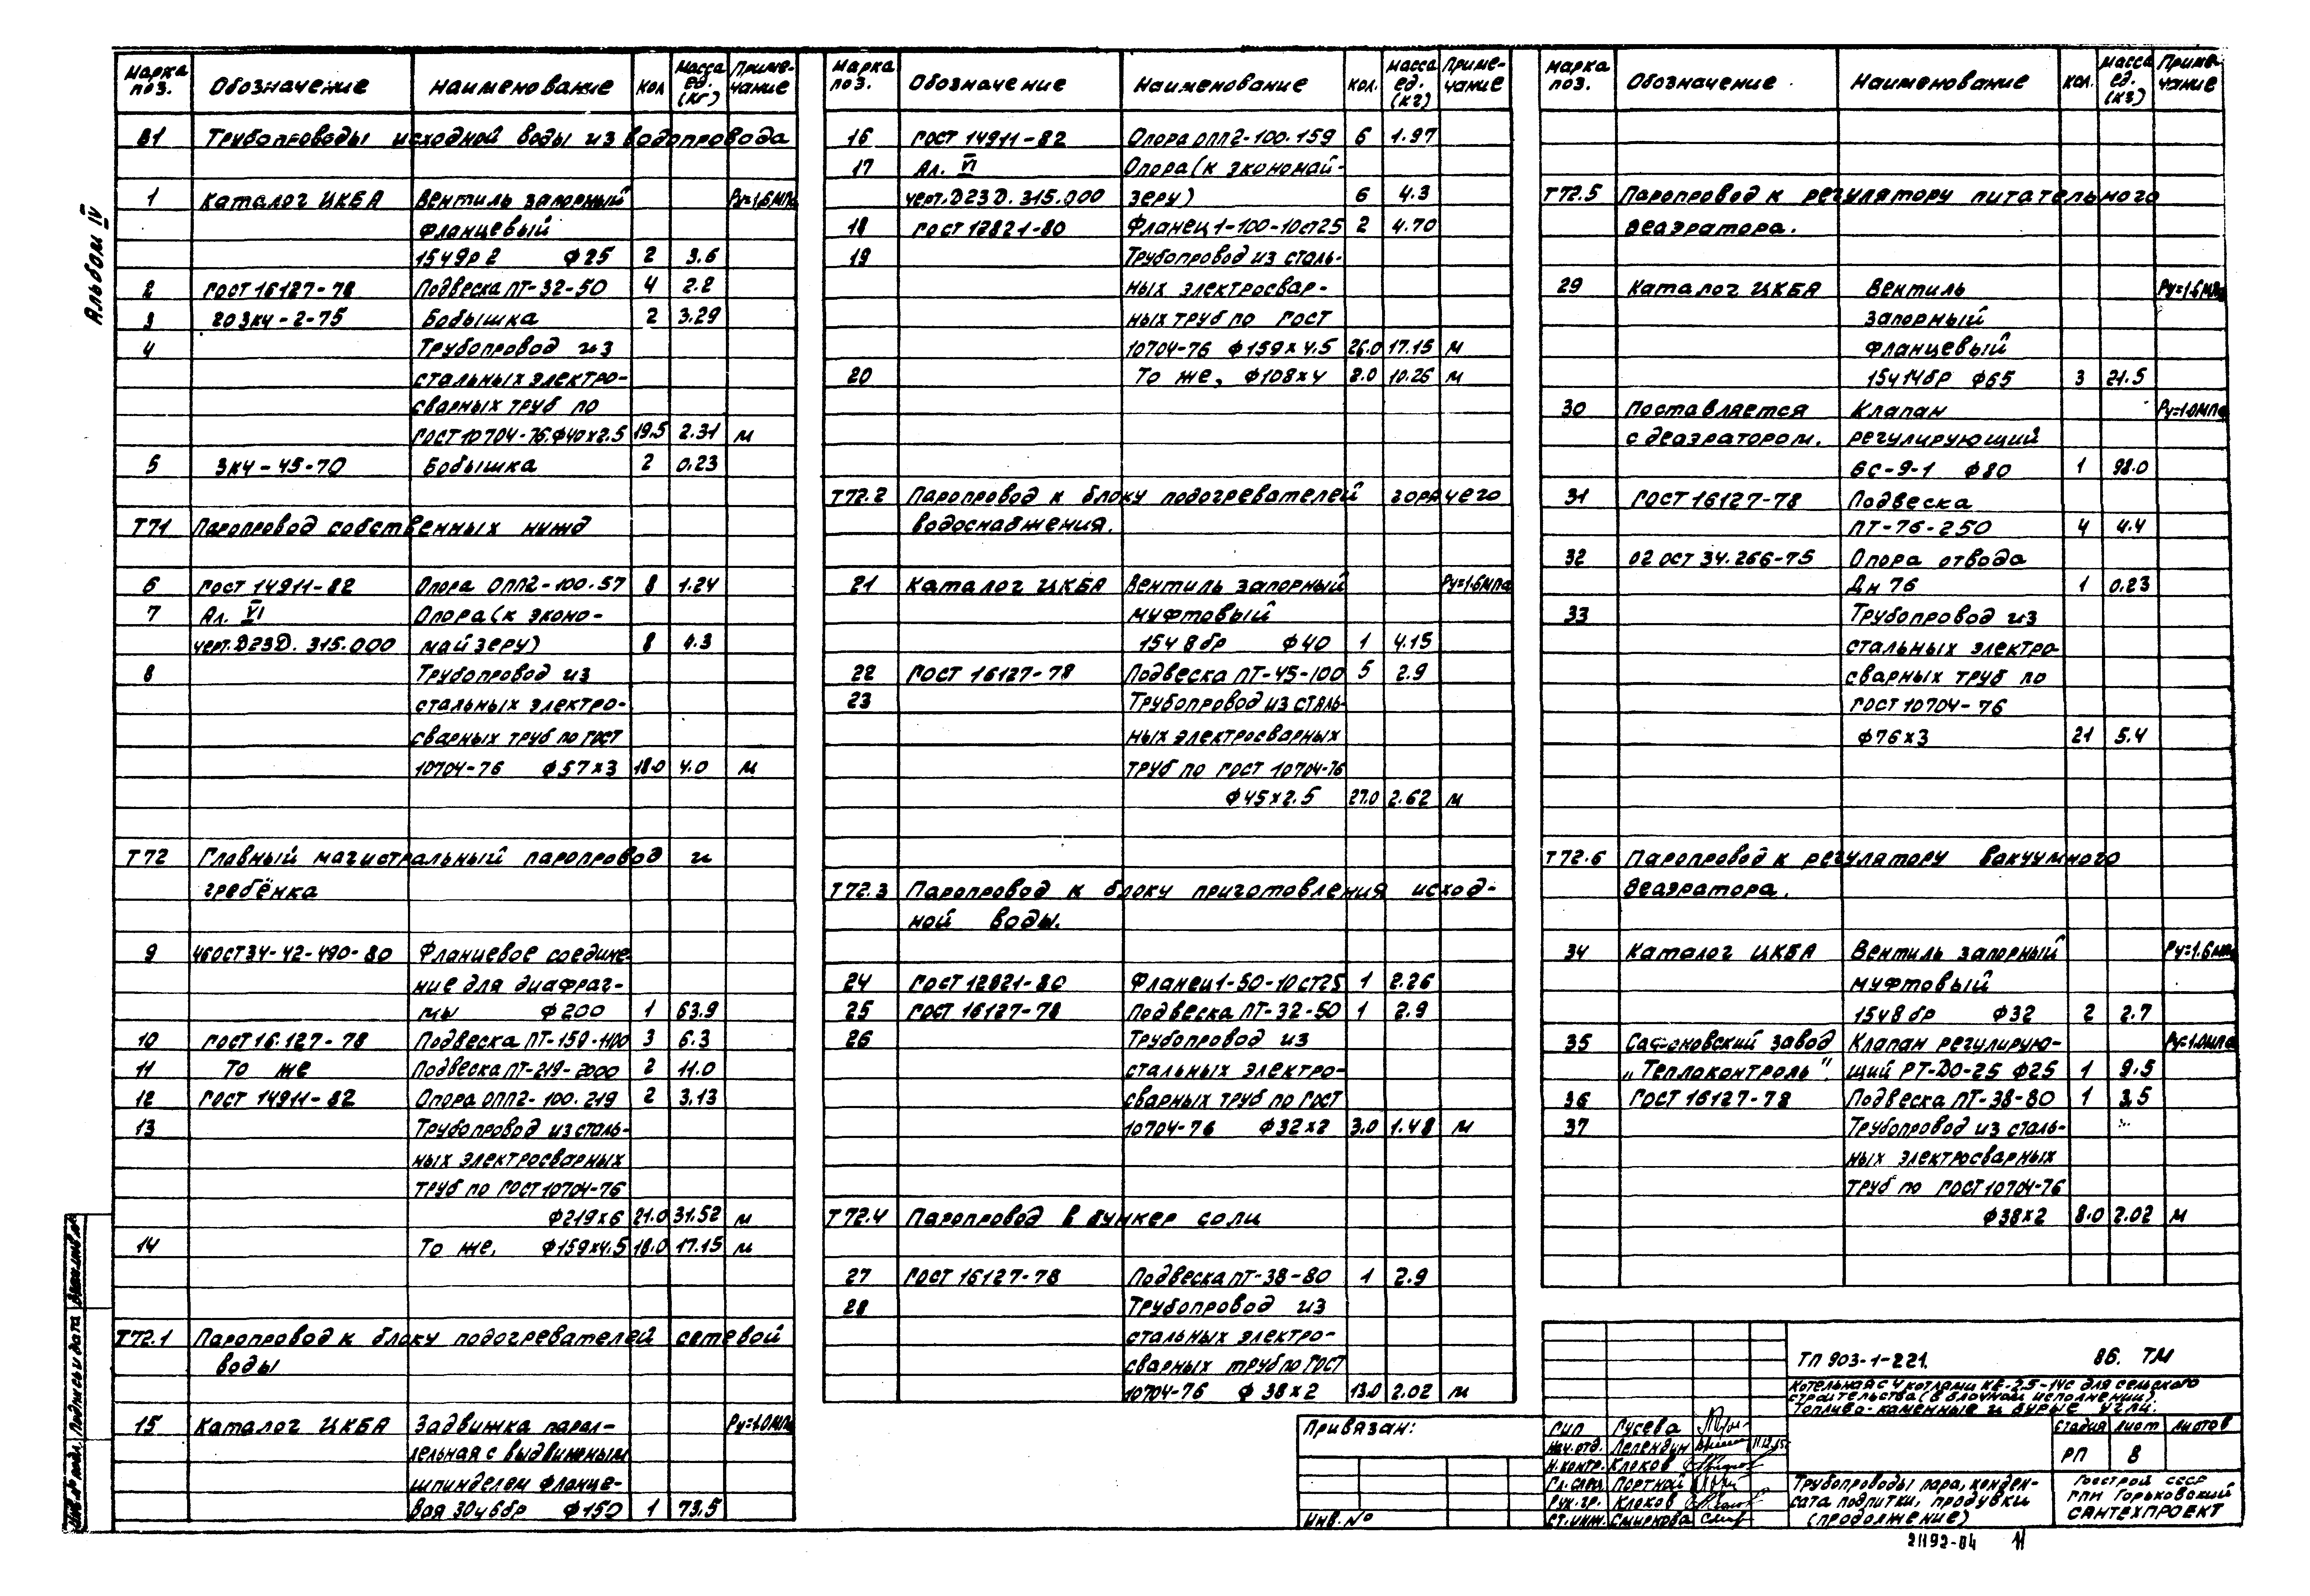 Альбом IV
Марка поз. Обозначение Наименование Кол Масса ед. (кг) Приме-чание
В1 Трубопроводы исходной воды из водопровода
1 Каталог ЦКБА Вентиль запорный Ру=1,6МПа
фланцевый
15ч9р2 ф25 2 3.6
2 ГОСТ 16127-78 Подвеска ПТ-32-50 4 2.2
3 20 ЗК4-2-75 Бобышка 2 3.29
4 Трубопровод из
стальных электро-
сварных труб по
ГОСТ 10704-76 ф40х2.5 19.5 2.31 м
5 ЗК4-45-70 Бобышка 2 0.23
Т71 Паропровод собственных нужд
6 ГОСТ 14911-82 Опора ОПП2-100.57 8 1.24
7 Ал. VI Опора (к эконо-
черт.Д23Д.315.000 майзеру) 8 4.3
8 Трубопровод из
стальных электро-
сварных труб по ГОСТ
10704-76 ф57х3 18.0 4.0 м
Т72 Главный магистральный паропровод и
гребёнка
9 46ОСТ34-42-490-80 Фланцевое соедине-
ние для диафраг-
мы ф200 1 63.9
10 ГОСТ 16.127-78 Подвеска ПТ-159-1100 3 6.3
11 То же Подвеска ПТ-219-2000 2 11.0
12 ГОСТ 14911-82 Опора ОПП2-100.219 2 3.13
13 Трубопровод из сталь-
ных электросварных
труб по ГОСТ 10704-76
ф219х6 21.0 31.52 м
14 То же, ф159х4.5 18.0 17.15 м
Т72.1 Паропровод к блоку подогревателей сетевой
воды
15 Каталог ЦКБА Задвижка парал- Ру=1.0МПа
лельная с выдвижным
шпинделем фланце-
вая 30ч6бр ф150 1 73.5
Марка поз. Обозначение Наименование Кол. Масса ед. (кг) Приме-чание
16 ГОСТ 14911-82 Опора ОПП2-100.159 6 1.97
17 Ал. VI Опора (к экономай-
черт.Д23Д.315.000 зеру) 6 4.3
18 ГОСТ 12821-80 Фланец 1-100-10ст25 2 4.70
19 Трубопровод из сталь-
ных электросвар-
ных труб по ГОСТ
10704-76 ф159х4.5 26.0 17.15 м
20 То же, ф108х4 8.0 10.26 м
Т72.2 Паропровод к блоку подогревателей горячего
водоснабжения.
21 Каталог ЦКБА Вентиль запорный Ру=1.6МПа
муфтовый
15ч8бр ф40 1 4.15
22 ГОСТ 16127-78 Подвеска ПТ-45-100 5 2.9
23 Трубопровод из сталь-
ных электросварных
труб по ГОСТ 10704-76
ф45х2.5 27.0 2.62 м
Т72.3 Паропровод к блоку приготовления исход-
ной воды.
24 ГОСТ 12821-80 Фланец 1-50-10ст25 1 2.26
25 ГОСТ 16127-78 Подвеска ПТ-32-50 1 2.9
26 Трубопровод из
стальных электро-
сварных труб по ГОСТ
10704-76 ф32х2 3.0 1.48 м
Т72.4 Паропровод в бункер соли
27 ГОСТ 16127-78 Подвеска ПТ-38-80 1 2.9
28 Трубопровод из
стальных электро-
сварных труб по ГОСТ
10704-76 ф38х2 13.0 2.02 м
Марка поз. Обозначение Наименование Кол. Масса ед. (кг) Приме-чание
Т72.5 Паропровод к регулятору питательного
деаэратора.
29 Каталог ЦКБА Вентиль Ру=1.6МПа
запорный
фланцевый
15ч14бр ф65 3 21.5
30 Поставляется Клапан Ру=1.0МПа
с деаэратором. регулирующий
6с-9-1 ф80 1 98.0
31 ГОСТ 16127-78 Подвеска
ПТ-76-250 4 4.4
32 02 ОСТ 34.266-75 Опора отвода
Дн 76 1 0.23
33 Трубопровод из
стальных электро-
сварных труб по
ГОСТ 10704-76
ф76х3 21 5.4
Т72.6 Паропровод к регулятору вакуумного
деаэратора.
34 Каталог ЦКБА Вентиль запорный Ру=1.6МПа
муфтовый
15ч8бр ф32 2 2.7
35 Сафоновский завод Клапан регулирую- Ру=1.0МПа
„Теплоконтроль". щий РТ-ДО-25 ф25 1 9.5
36 ГОСТ 16127-78 Подвеска ПТ-38-80 1 3.5
37 Трубопровод из сталь-
ных электросварных
труб по ГОСТ 10704-76
ф38х2 8.0 2.02 м
Инв.№ подл. Подпись и дата Взам.инв.№
Привязан:
Инв.№
ГИП Гусева
Нач.отд. Лелендин
Н.контр. Клоков
Гл.спец. Портной
Рук.гр. Клоков
Ст.инж. Смирнова
ТП 903-1-221. 86. ТМ
Котельная с 4 котлами КЕ-2.5-14С для сельского
строительства (в блочном исполнении).
Топливо-каменные и бурые угли.
Стадия Лист Листов
РП 8
Трубопроводы пара, конден-
сата подпитки, продувки
(продолжение)
Госстрой СССР
ГПИ Горьковский
САНТЕХПРОЕКТ
21192-04 11